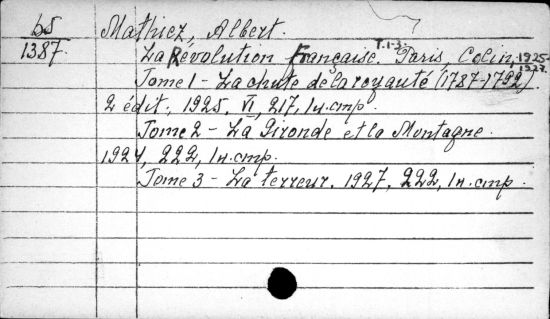 б5 Mathiez, Albert.
1387. La Révolution Française. T. 1-3. Paris, Colin, 1925-1927.
Tome 1 - La chute de la royauté (1787-1792).
2 édit., 1925, VI, 217, 1 н. стр.
Tome 2 - La Gironde et la Montagne.
1924, 222, 1 н. стр.
Tome 3 - La terreur. 1927, 222, 1 н. стр.